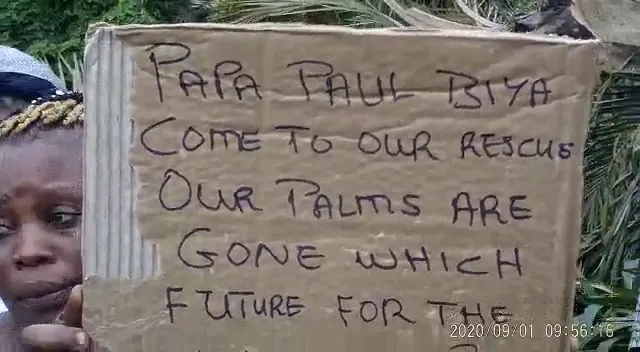 PAPA PAUL BIYA
COME TO OUR RESCUE
OUR PALMS ARE
GONE WHICH
FUTURE FOR THE
2020/09/01 09:56:16